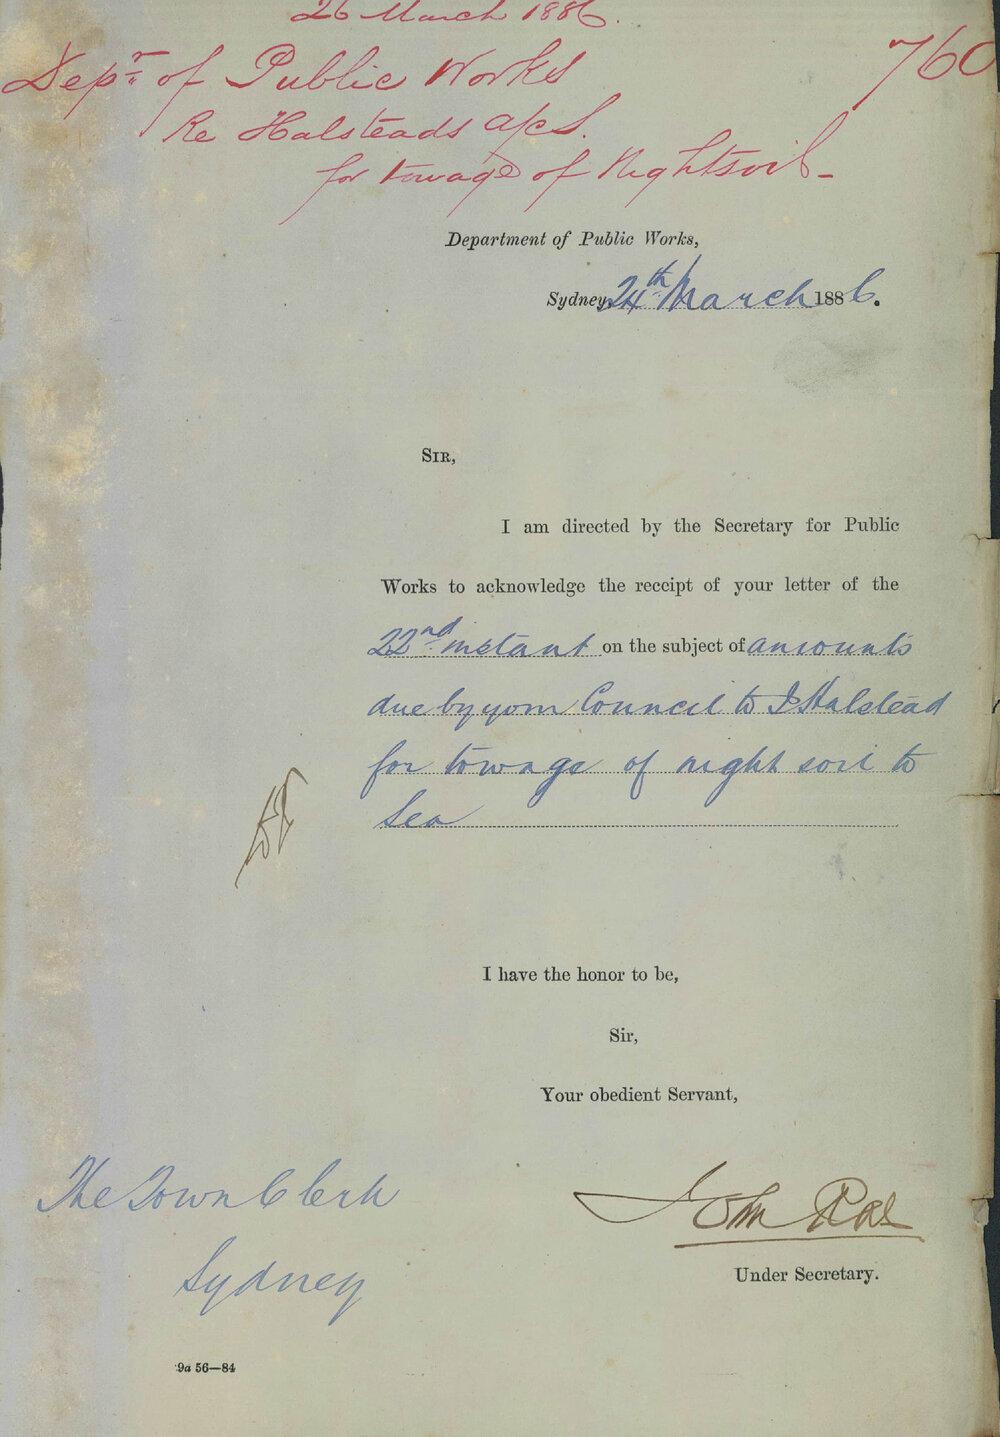 26 March 1886.
760
Depr. of Public Works
Re Halsteads a/cs.
for towage of Nightsoil-
Department of Public Works,
Sydney, 24th March 1886.
SIR,
I am directed by the Secretary for Public
Works to acknowledge the receipt of your letter of the
22nd instant on the subject of amounts
due by your Council to J Halstead
for towage of night soil to
Sea
I have the honor to be,
Sir,
Your obedient Servant,
The Town Clerk
John Rae
Sydney
Under Secretary.
9a 56—84